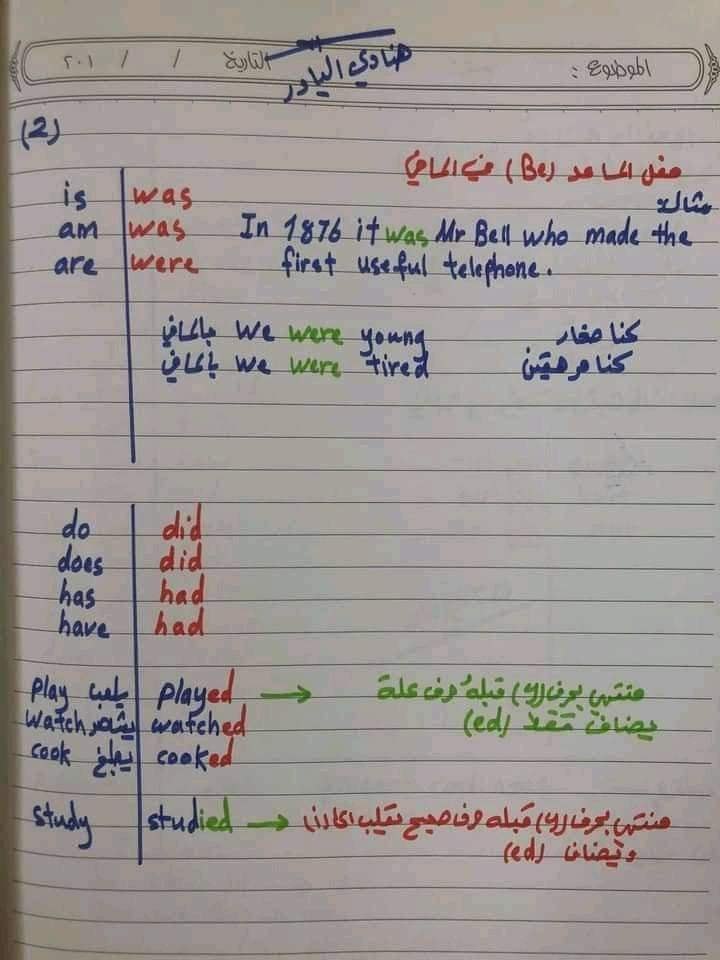 الموضوع :
التاريخ / / ٢٠١
هنادي الياور
(2)
فعل المساعد (Be) في الماضي
is was
مثال
am was In 1876 it was Mr Bell who made the
are were first useful telephone.
بالماضي we were young كنا صغار
بالماضي we were tired كنا مرهقين
do did
does did
has had
have had
play يلعب played → منتهي بحرف (y) قبله حرف علة
watch يشاهد watched يضاف فقط (ed)
cook يطبخ cooked
study studied → منتهي بحرف (y) قبله حرف صحيح تقلب الى (i)
ويضاف (ed)